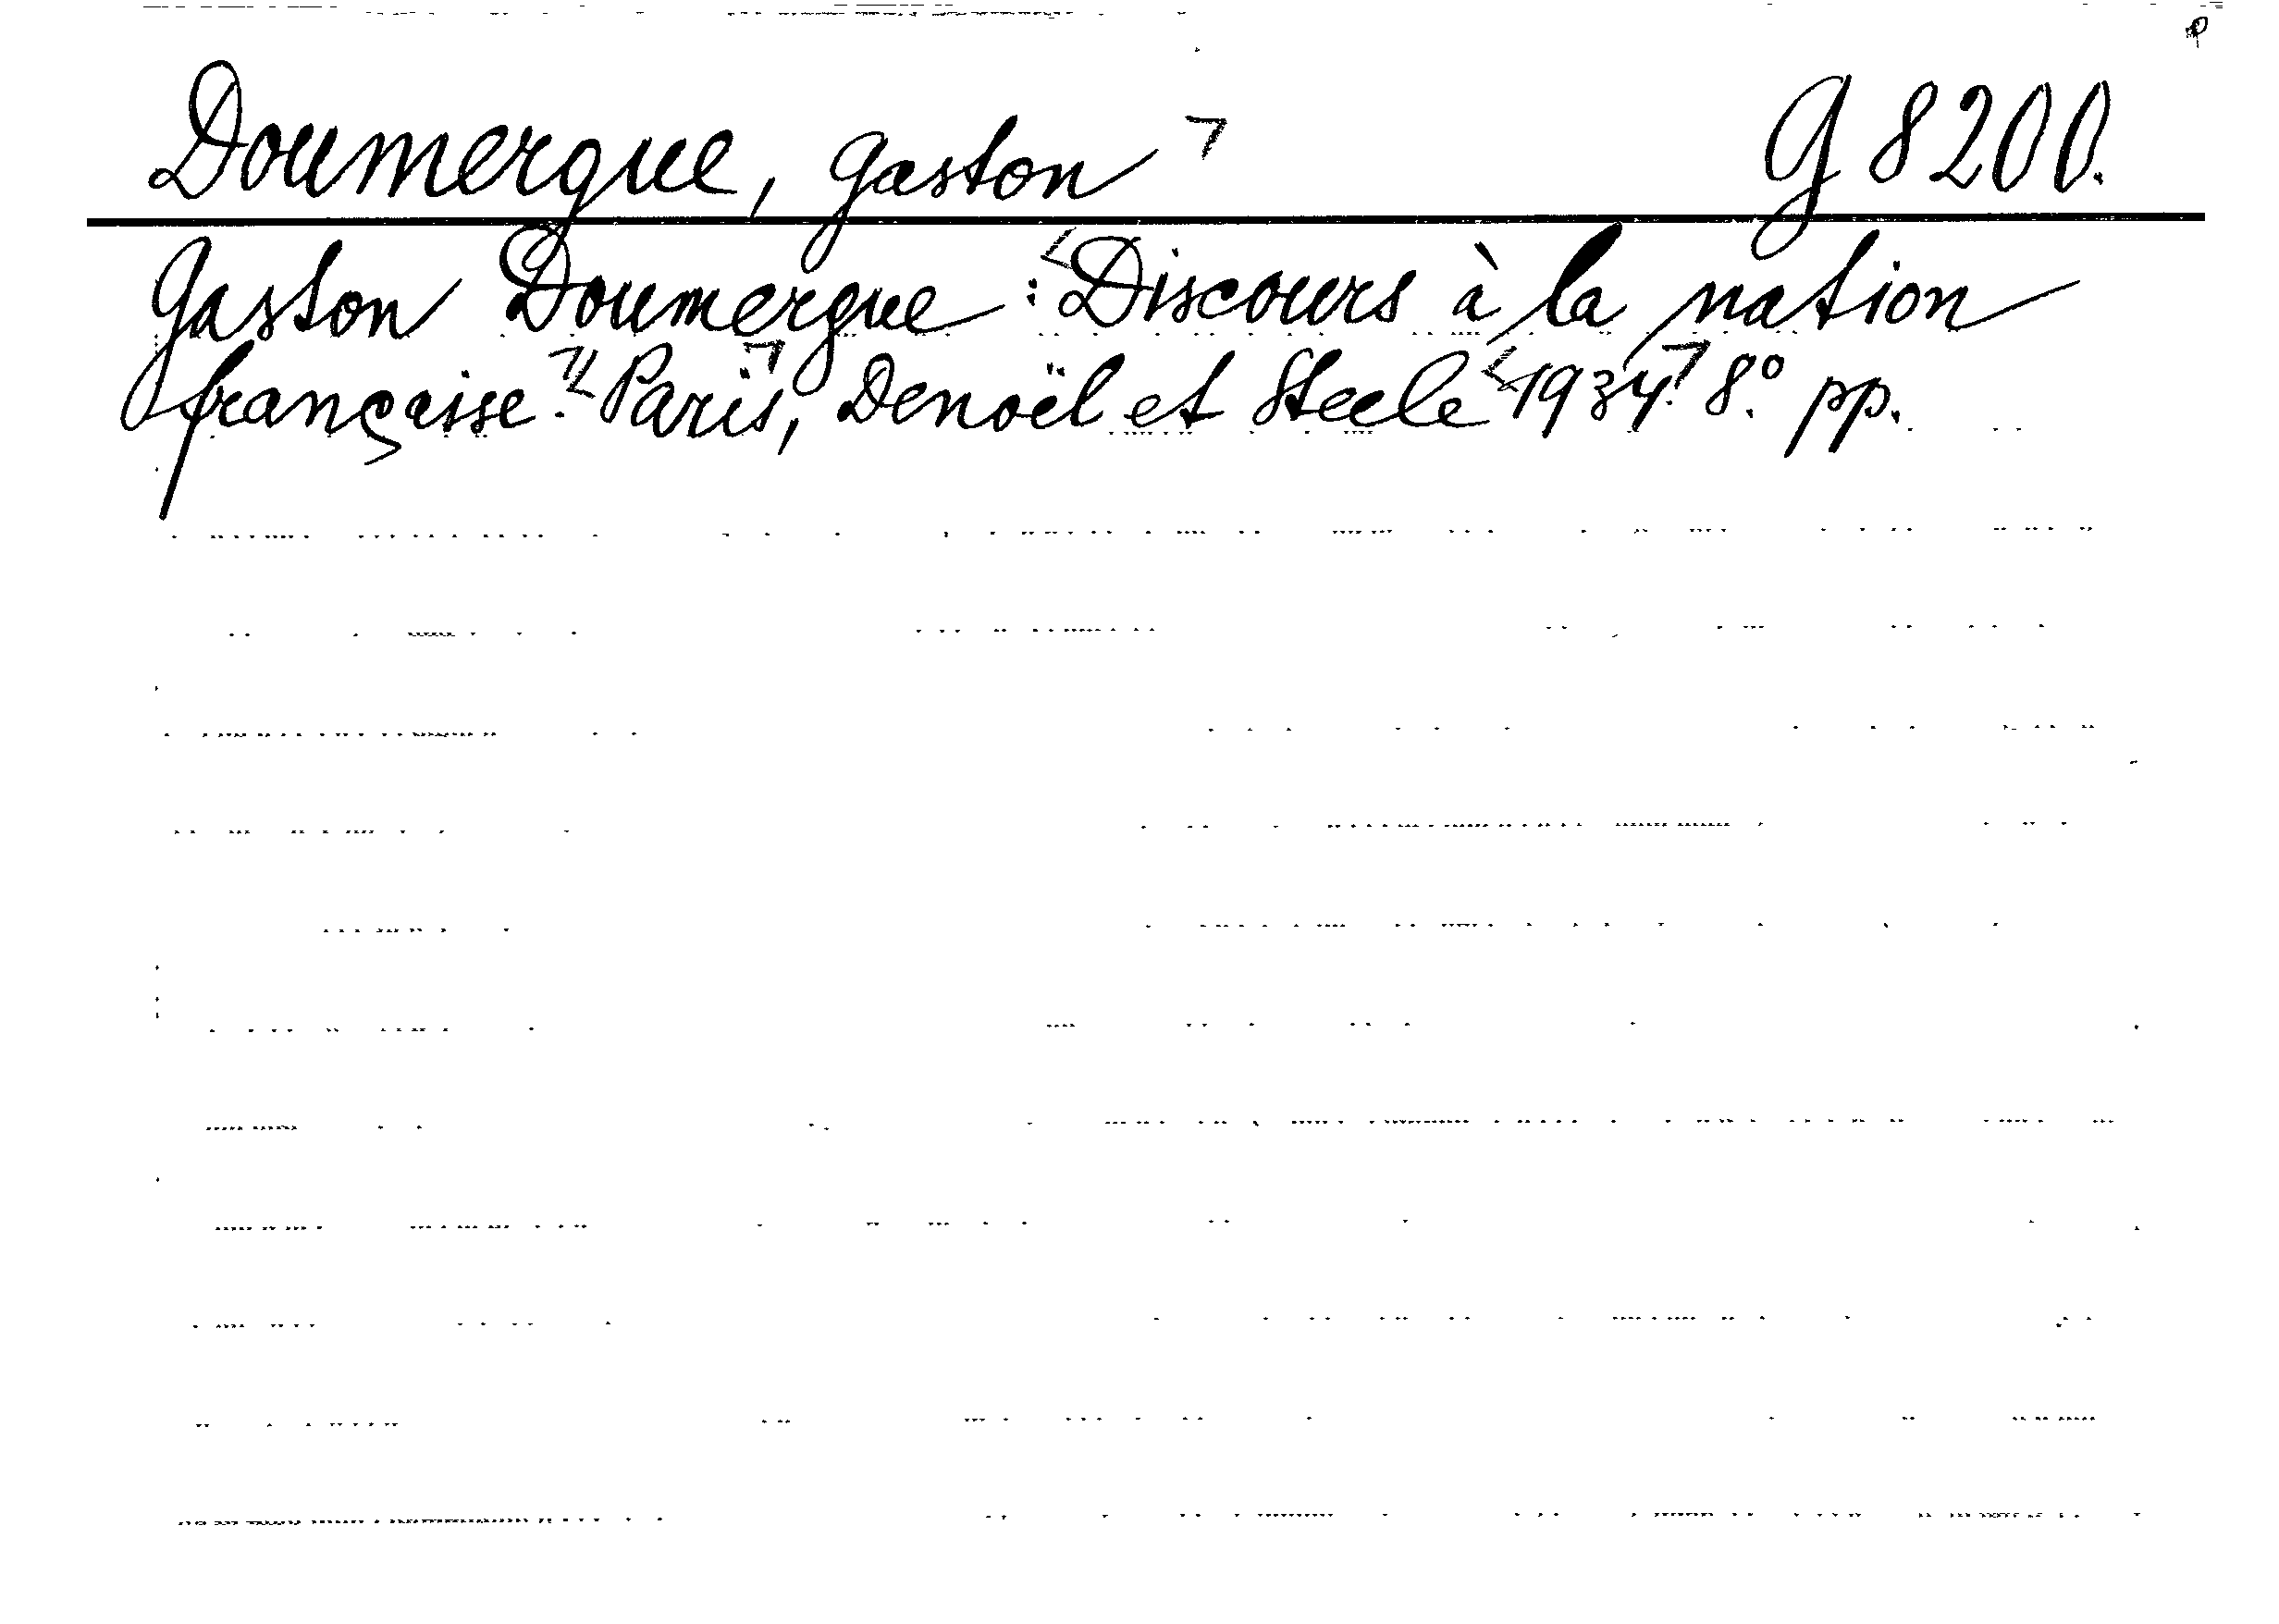 Doumergue, Gaston G 8200.
Gaston Doumergue : Discours à la nation
française. Paris, Denoël et Steele 1934. 8° pp.